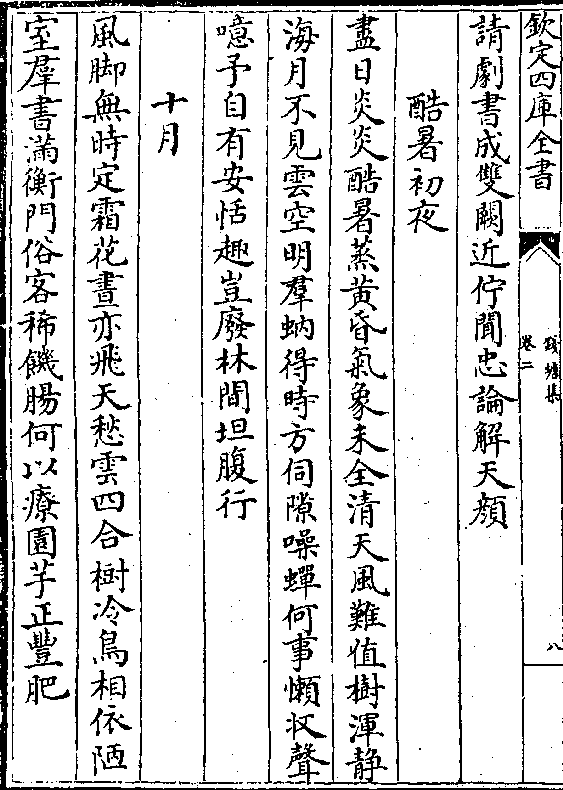 欽定四庫全書
錢塘集
卷二
八
請劇書成雙闕近佇聞忠論解天顔
酷暑初夜
盡日炎炎酷暑蒸黄昏氣象未全清天風難值樹渾静
海月不見雲空明羣蚋得時方伺隙噪蟬何事懶收聲
噫予自有安恬趣豈廢林間坦腹行
十月
風脚無時定霜花晝亦飛天愁雲四合樹冷鳥相依陋
室羣書滿衡門俗客稀饑腸何以療園芋正豐肥